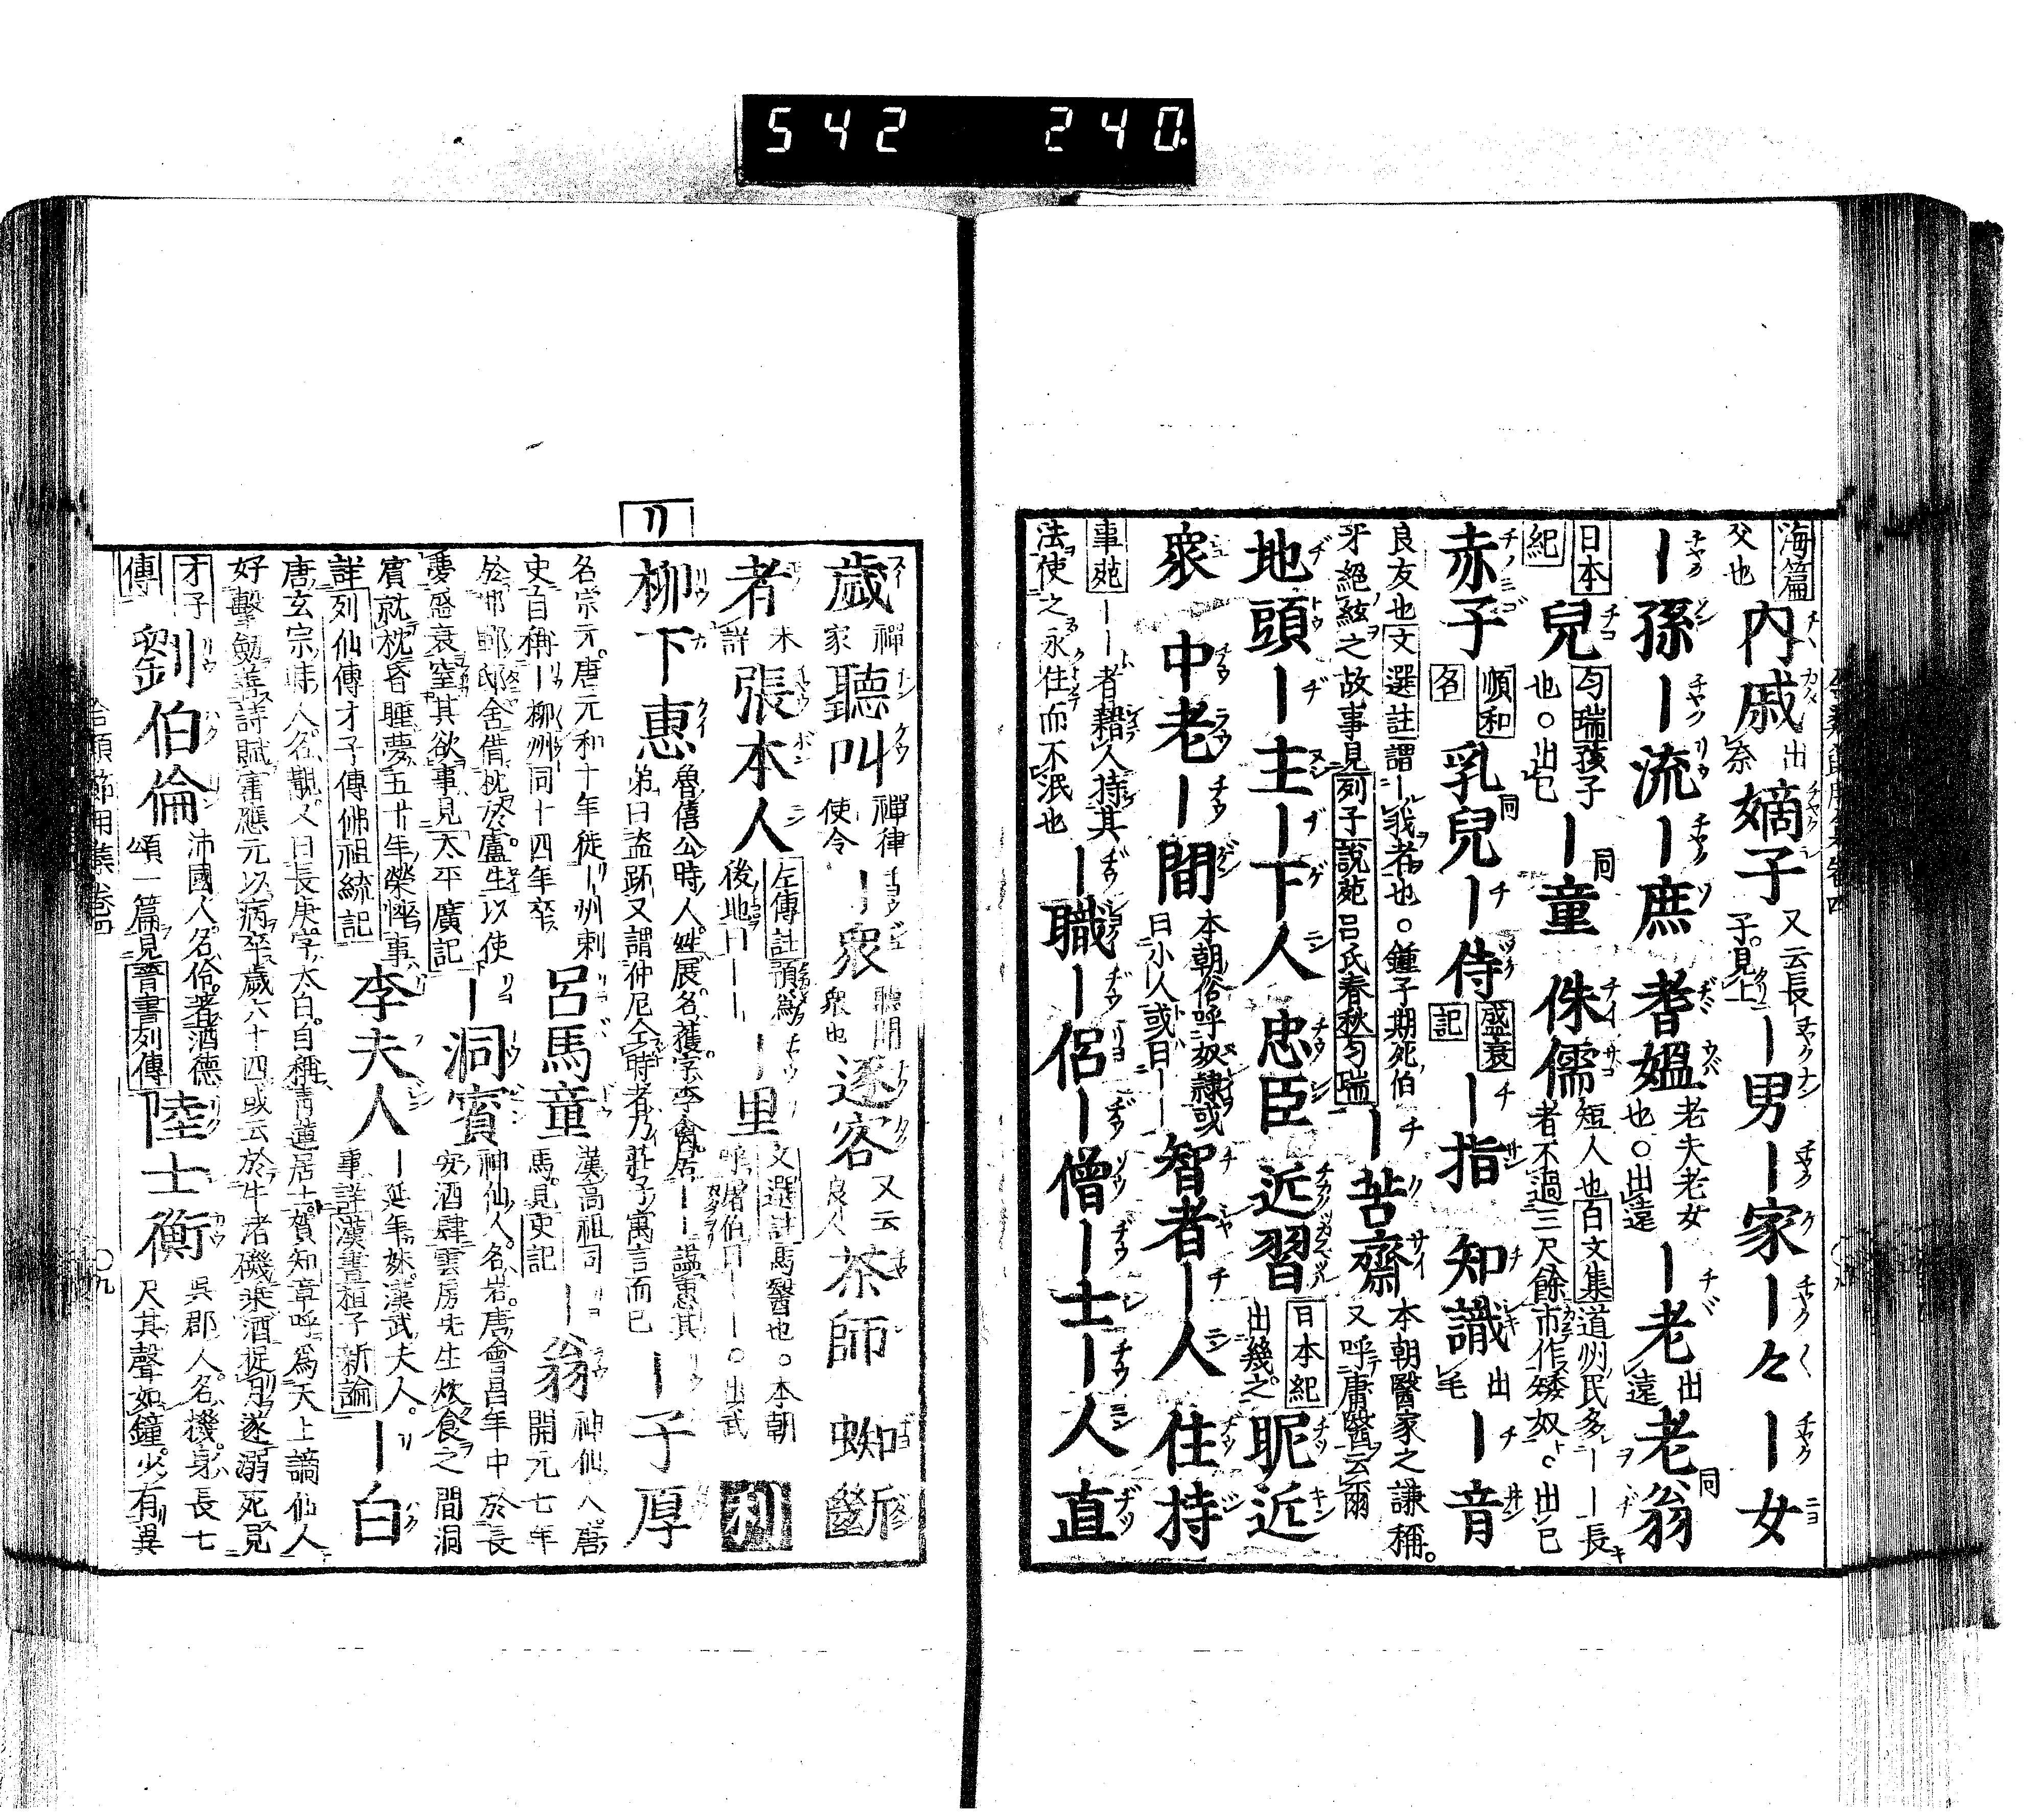 542 240
海篇
父也
内戚 出奈 嫡子 又云長子見上 ー男 ー家 ー々 ー女
ー孫 ー流 ー庶 耆媼 老夫老女也○出遠 ー老 出遠 老翁 同
日本紀 兒 匀瑞 孩子也○出巳 ー童 同 侏儒 短人也 百文集 道州民多ーー長者不過三尺餘市作矮奴 出巳
赤子 順和名 乳兒 同 ー侍 盛衰記 ー指 知識 出毛 ー音
良友也 文選註 謂ー我者也○鍾子期死伯牙絕絃之故事見 列子 說苑 呂氏春秋 匀瑞 ー苦齋 本朝醫家之謙稱。又呼庸醫云爾
地頭 ー主 ー下人 忠臣 近習 日本紀 出幾之 昵近
衆 中老 ー間 本朝俗呼奴隷或曰小人或曰ーー 智者 ー人 住持
事苑 ーー者藉人持其法使之永住而不泯也 ー職 ー侶 ー僧 ー士 ー人 直
歳 禪家 聽叫 禪律使令 ー衆 聽聞衆也 逐客 又云良人 茶師 蜘斷
者 未詳 張本人 左傳註 預爲後地曰ーーー ー里 文選註 馬醫也○本朝呼屠伯曰ーー○出武 利
リ
柳下惠 魯僖公時人姓展名獲字李禽居ーー謚惠其弟曰盗跖又謂仲尼仝時者乃莊子寓言而已 ー子厚
名宗元唐元和十年徙ー州刺史自稱ー柳州同十四年卒 呂馬童 漢高祖司馬見 史記 ー翁 神仙人唐開元七年
於邯鄲邸舍借枕於盧生以使夢盛衰窒其欲事見 太平廣記 ー洞賓 神仙人名岩唐會昌年中於長安酒肆雲房先生炊食之間洞
賓就枕昏睡夢五十年榮悴事詳 列仙傳 才子傳 佛祖統記 李夫人 ー延年妹漢武夫人事詳 漢書 桓子新論 ー白
唐玄宗時人名覯又曰長庚字太白自稱靑蓮居士賀知章呼爲天上謫仙人
好擊劔善詩賦寳應元以病卒歲六十四或云於牛渚磯乗酒捉月遂溺死見
才子傳 劉伯倫 沛國人名伶著酒德頌一篇見 晉書列傳 陸士衡 吳郡人名機身長七尺其聲如鐘少有異
合類節用集卷四 〇九